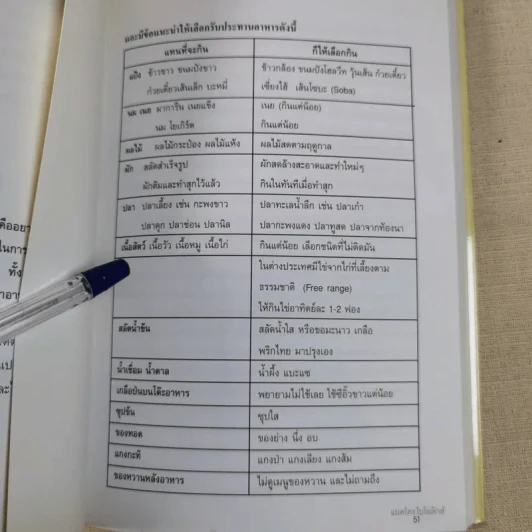 และมีข้อแนะนำให้เลือกรับประทานอาหารดังนี้
แทนที่จะกิน ก็ให้เลือกกิน
แป้ง ข้าวขาว ขนมปังขาว ข้าวกล้อง ขนมปังโฮลวีท วุ้นเส้น ก๋วยเตี๋ยว
ก๋วยเตี๋ยวเส้นเล็ก บะหมี่ เซี่ยงไฮ้ เส้นโซบะ (Soba)
นม เนย มาการีน เนยแข็ง เนย (กินแค่น้อย)
นม โยเกิร์ต กินแค่น้อย
ผลไม้ ผลไม้กระป๋อง ผลไม้แห้ง ผลไม้สดตามฤดูกาล
ผัก สลัดสำเร็จรูป ผักสดล้างสะอาดและทำใหม่ๆ
ผักต้มและทำสุกไว้แล้ว กินในทันทีเมื่อทำสุก
ปลา ปลาเลี้ยง เช่น กะพงขาว ปลาทะเลน้ำลึก เช่น ปลาเก๋า
ปลาดุก ปลาช่อน ปลานิล ปลากะพงแดง ปลาทูสด ปลาจากท้องนา
เนื้อสัตว์ เนื้อวัว เนื้อหมู เนื้อไก่ กินแค่น้อย เลือกชนิดที่ไม่ติดมัน
ในต่างประเทศมีไข่จากไก่ที่เลี้ยงตาม
ธรรมชาติ (Free range)
ให้กินไข่อาทิตย์ละ 1-2 ฟอง
สลัดน้ำข้น สลัดน้ำใส หรือขอมะนาว เกลือ
พริกไทย มาปรุงเอง
น้ำเชื่อม น้ำตาล น้ำผึ้ง แบะแซ
เกลือป่นบนโต๊ะอาหาร พยายามไม่ใช้เลย ใช้ซีอิ๊วขาวแต่น้อย
ซุปข้น ซุปใส
ของทอด ของย่าง นึ่ง อบ
แกงกะทิ แกงป่า แกงเลียง แกงส้ม
ของหวานหลังอาหาร ไม่ดูเมนูของหวาน และไม่ถามถึง
แมคโครไบโอติกส์
51